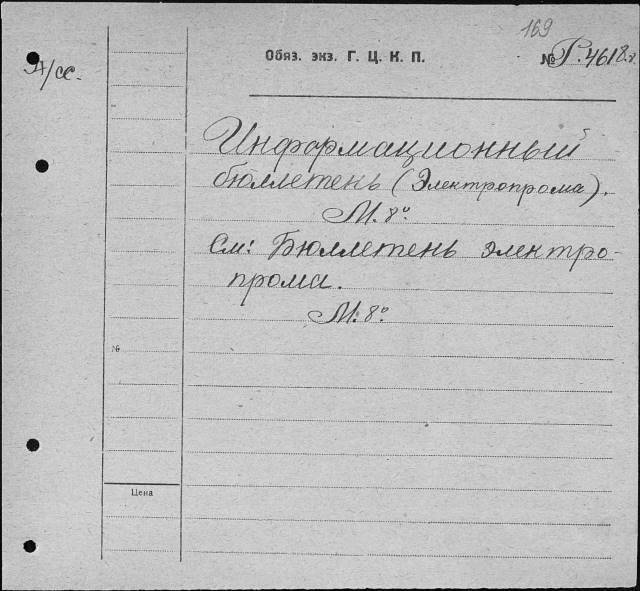 169
Обяз. экз. Г. Ц. К. П.
№ Р.4618
А/сс.
Информационный
бюллетень (Электропрома).
М. 8º
См: Бюллетень электро-
прома.
М. 8º
№
Цена